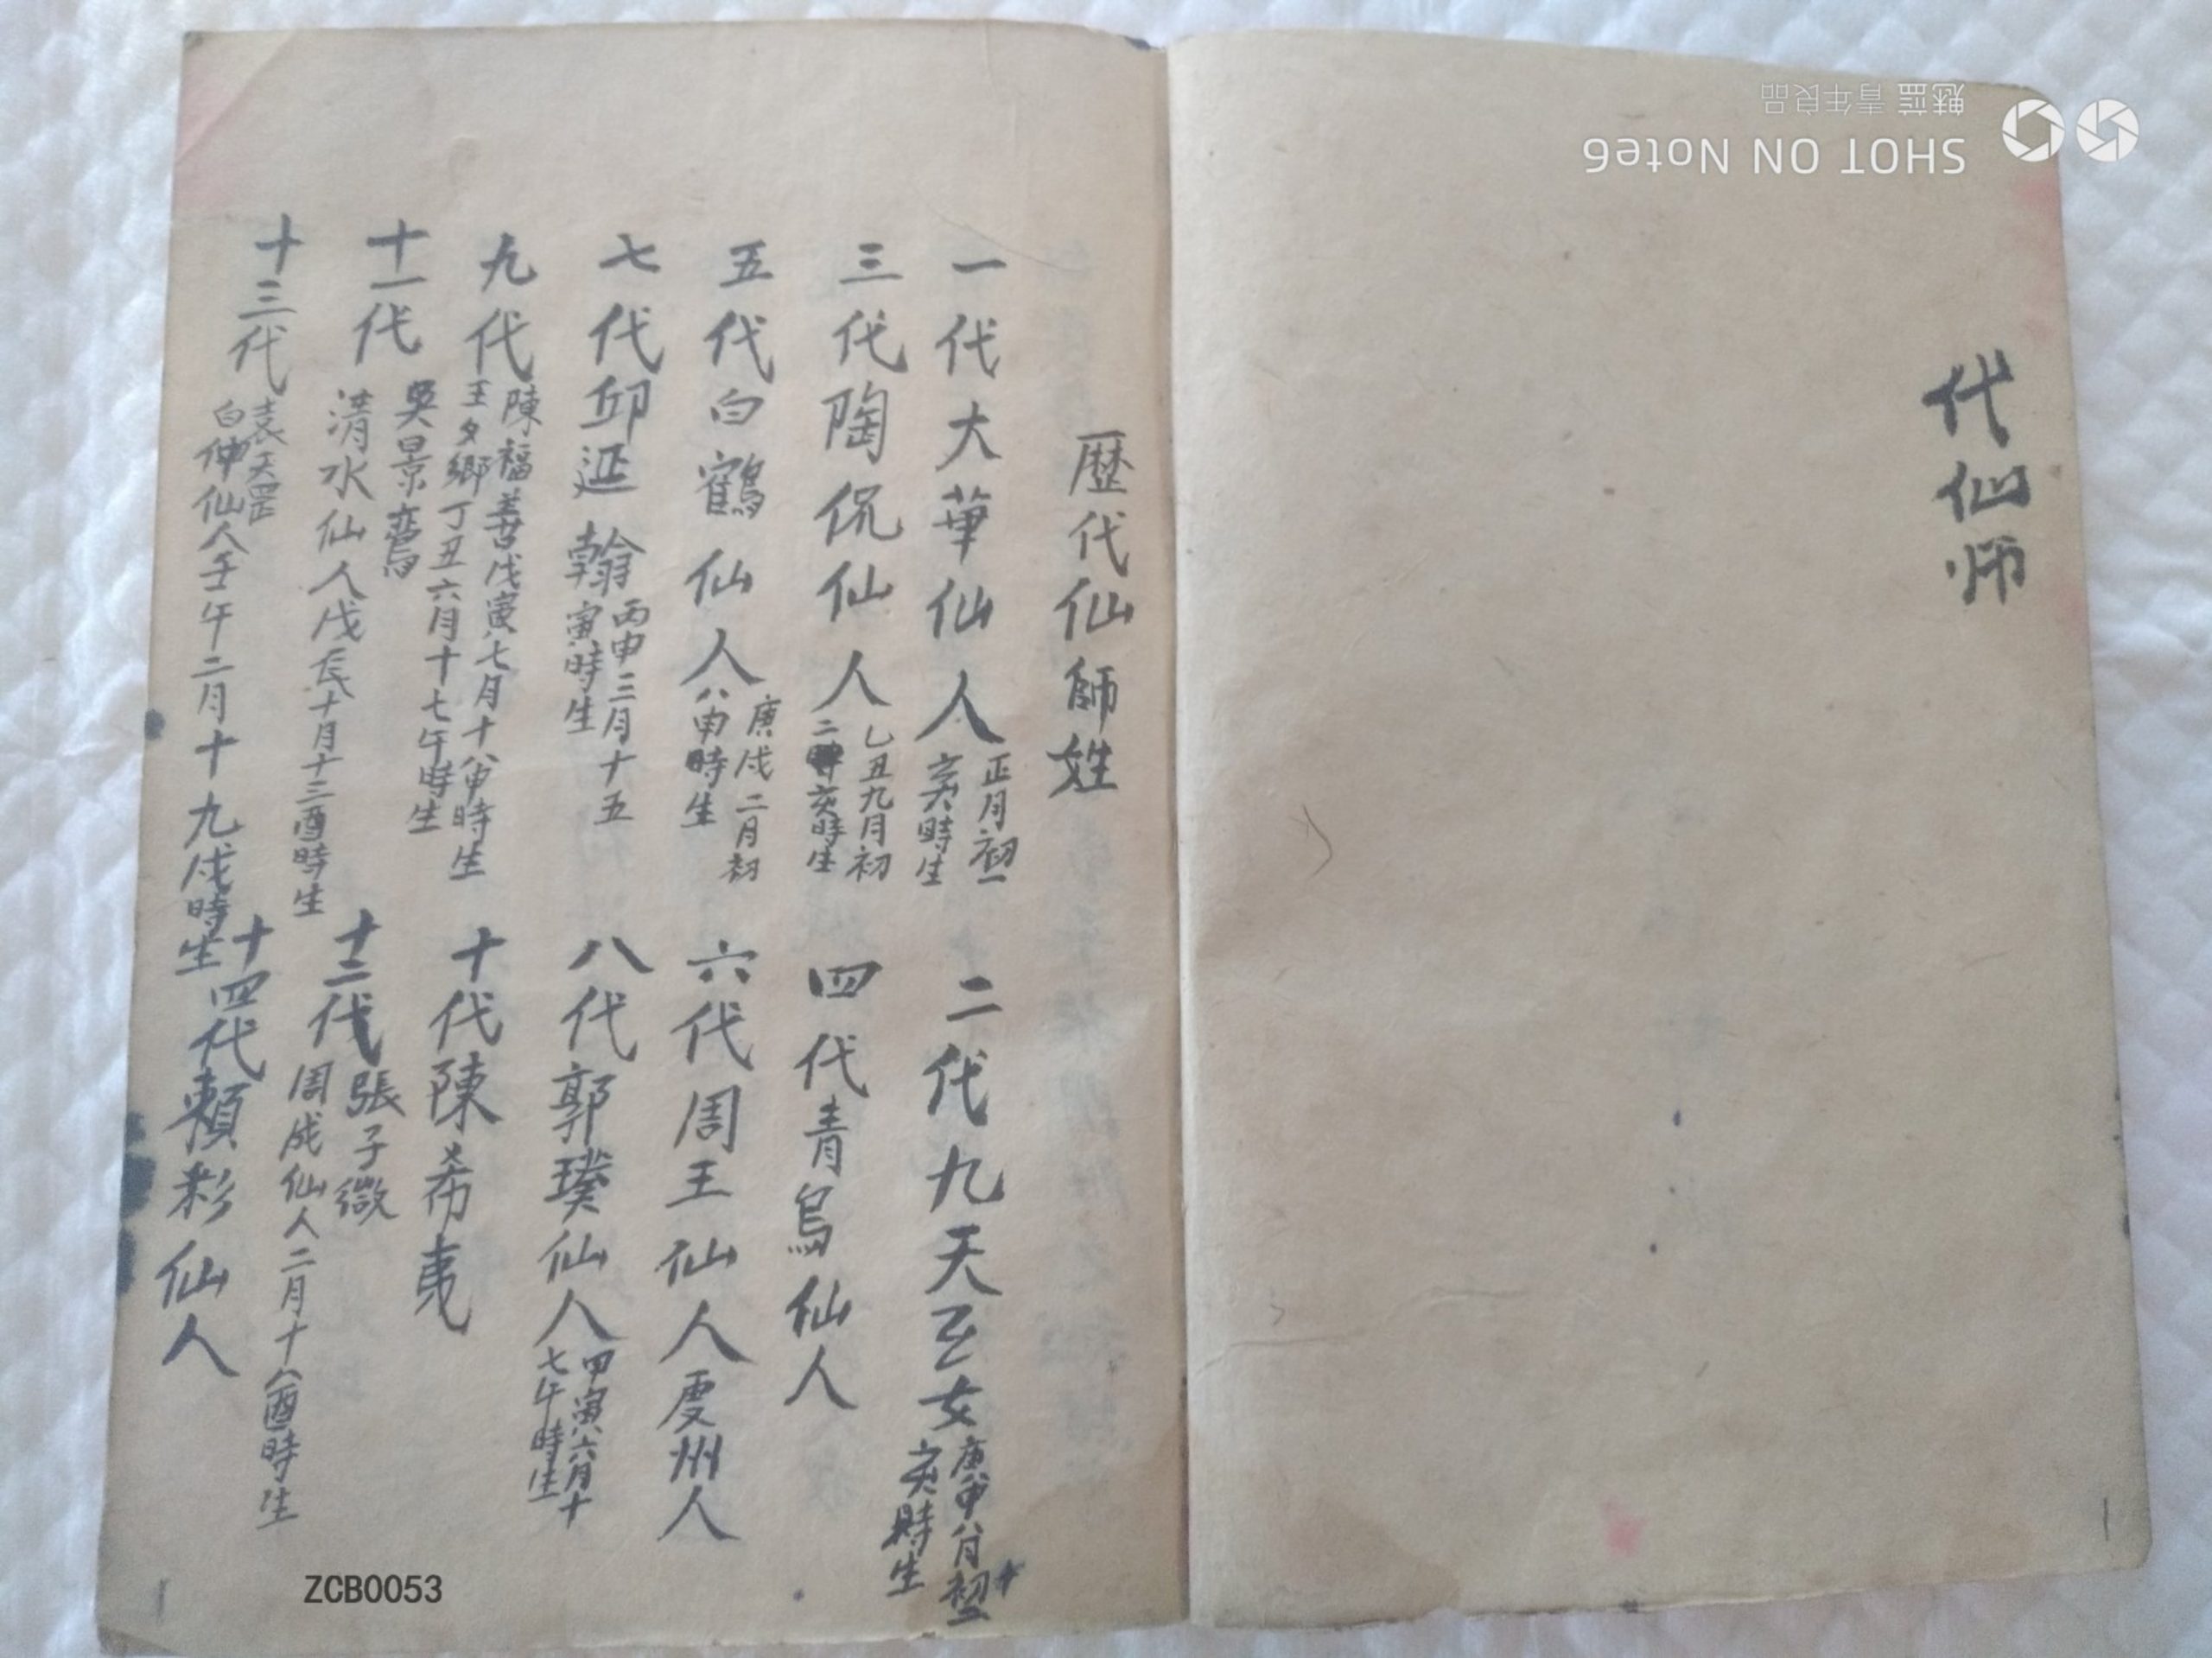 代仙师
歷代仙師姓
一代大華仙人
正月初一
亥時生
二代九天玄女
庚申八月初二
亥時生
三代陶侃仙人
乙丑九月初
二亥時生
四代青烏仙人
五代白鶴仙人
庚戌二月初
八申時生
六代周王仙人虔州人
七代邱延翰
丙申三月十五
寅時生
八代郭璞仙人
甲寅六月十
七午時生
九代
陳福善戊寅七月十八申時生
王夕鄉丁丑六月十七午時生
吳景鸞
十代陳希夷
十一代
清水仙人戊辰十月十三酉時生
十二代
張子微
周成仙人二月十八酉時生
十三代
袁天罡
白仲仙人壬午二月十九戌時生
十四代賴彩仙人
SHOT ON Note6
魅蓝 青年良品
ZCB0053